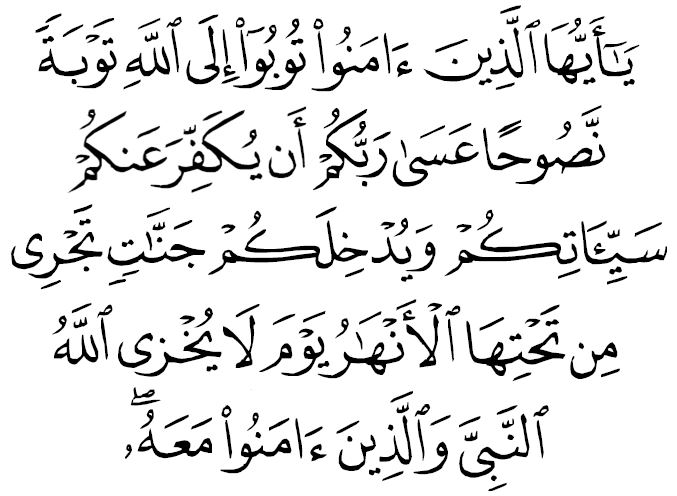 يَـٰٓأَيُّهَا ٱلَّذِينَ ءَامَنُوا۟ تُوبُوٓا۟ إِلَى ٱللَّهِ تَوْبَةً
نَّصُوحًا عَسَىٰ رَبُّكُمْ أَن يُكَفِّرَ عَنكُمْ
سَيِّـَٔاتِكُمْ وَيُدْخِلَكُمْ جَنَّـٰتٍ تَجْرِى
مِن تَحْتِهَا ٱلْأَنْهَـٰرُ يَوْمَ لَا يُخْزِى ٱللَّهُ
ٱلنَّبِىَّ وَٱلَّذِينَ ءَامَنُوا۟ مَعَهُۥ ۖ